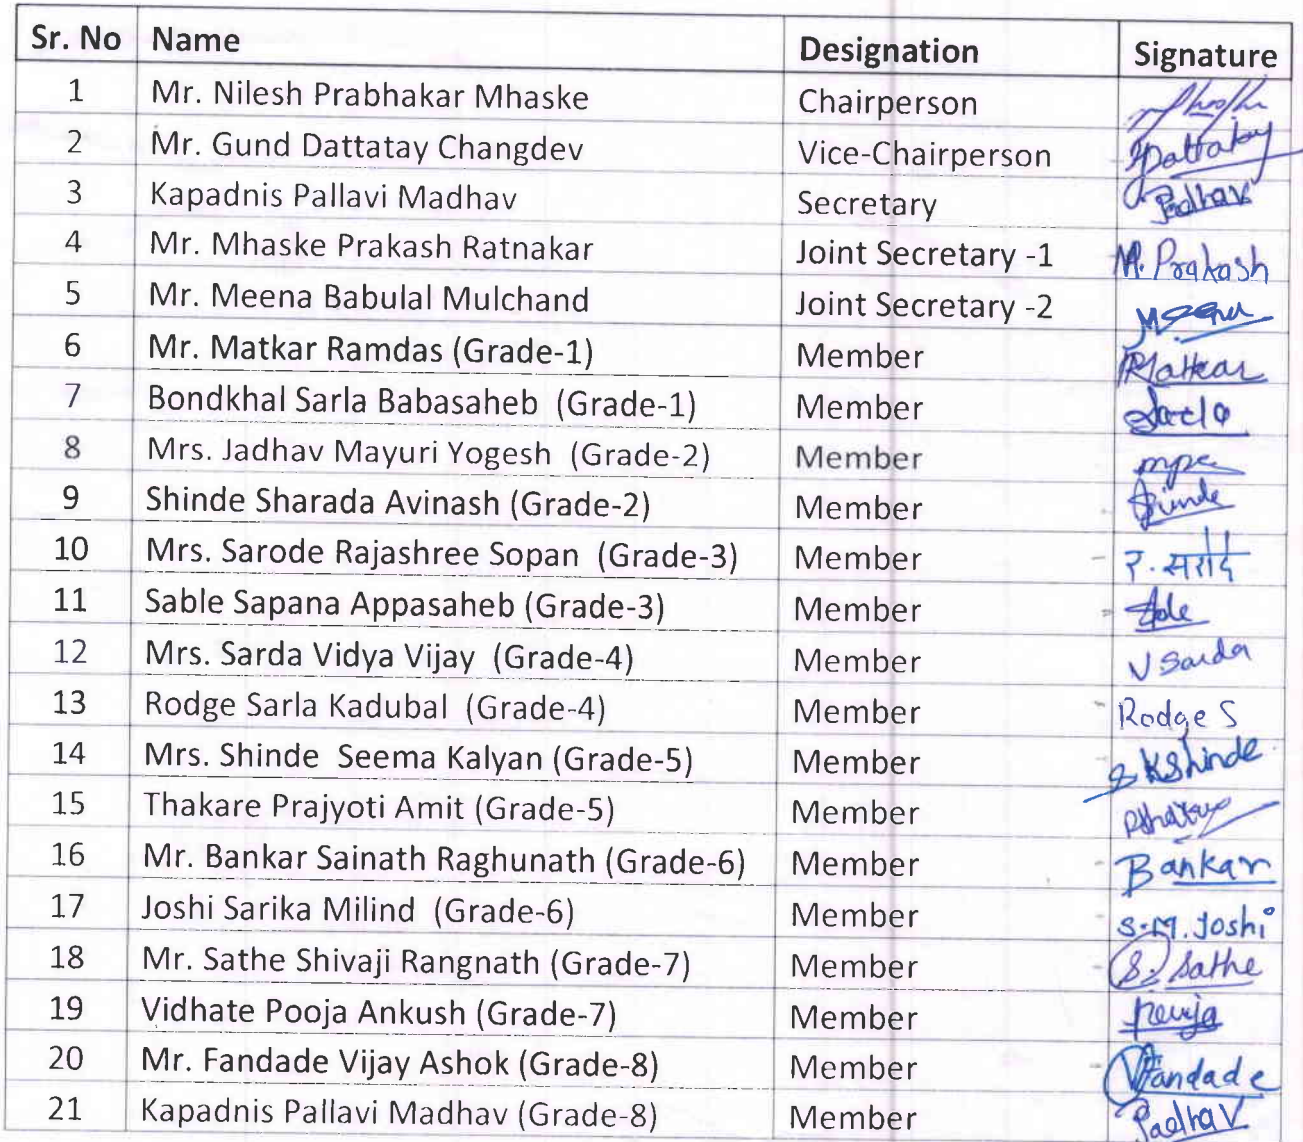 Sr. No Name Designation Signature
1 Mr. Nilesh Prabhakar Mhaske Chairperson
2 Mr. Gund Dattatay Changdev Vice-Chairperson Dattatay
3 Kapadnis Pallavi Madhav Secretary
4 Mr. Mhaske Prakash Ratnakar Joint Secretary -1 M. Prakash
5 Mr. Meena Babulal Mulchand Joint Secretary -2 Meena
6 Mr. Matkar Ramdas (Grade-1) Member RMatkar
7 Bondkhal Sarla Babasaheb (Grade-1) Member Sarla
8 Mrs. Jadhav Mayuri Yogesh (Grade-2) Member
9 Shinde Sharada Avinash (Grade-2) Member Shinde
10 Mrs. Sarode Rajashree Sopan (Grade-3) Member र. सरोदे
11 Sable Sapana Appasaheb (Grade-3) Member
12 Mrs. Sarda Vidya Vijay (Grade-4) Member V Sarda
13 Rodge Sarla Kadubal (Grade-4) Member Rodge S
14 Mrs. Shinde Seema Kalyan (Grade-5) Member S KShinde
15 Thakare Prajyoti Amit (Grade-5) Member
16 Mr. Bankar Sainath Raghunath (Grade-6) Member Bankar
17 Joshi Sarika Milind (Grade-6) Member S.M. Joshi
18 Mr. Sathe Shivaji Rangnath (Grade-7) Member S. Sathe
19 Vidhate Pooja Ankush (Grade-7) Member
20 Mr. Fandade Vijay Ashok (Grade-8) Member VFandade
21 Kapadnis Pallavi Madhav (Grade-8) Member